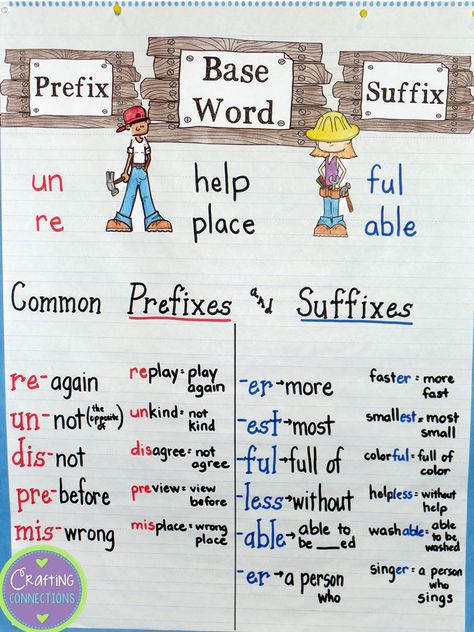 Prefix
Base
Word
Suffix
un help ful
re place able
Common Prefixes and Suffixes
re- again
replay = play
again
un- not (the
opposite
of)
unkind = not
kind
dis- not
disagree = not
agree
pre- before
preview = view
before
mis- wrong
misplace = wrong
place
-er → more
faster = more
fast
-est → most
smallest = most
small
-ful → full of
colorful = full of
color
-less → without
helpless = without
help
-able → able to
be __ed
washable = able
to be
washed
-er → a person
who
singer = a person
who
sings
Crafting
Connections